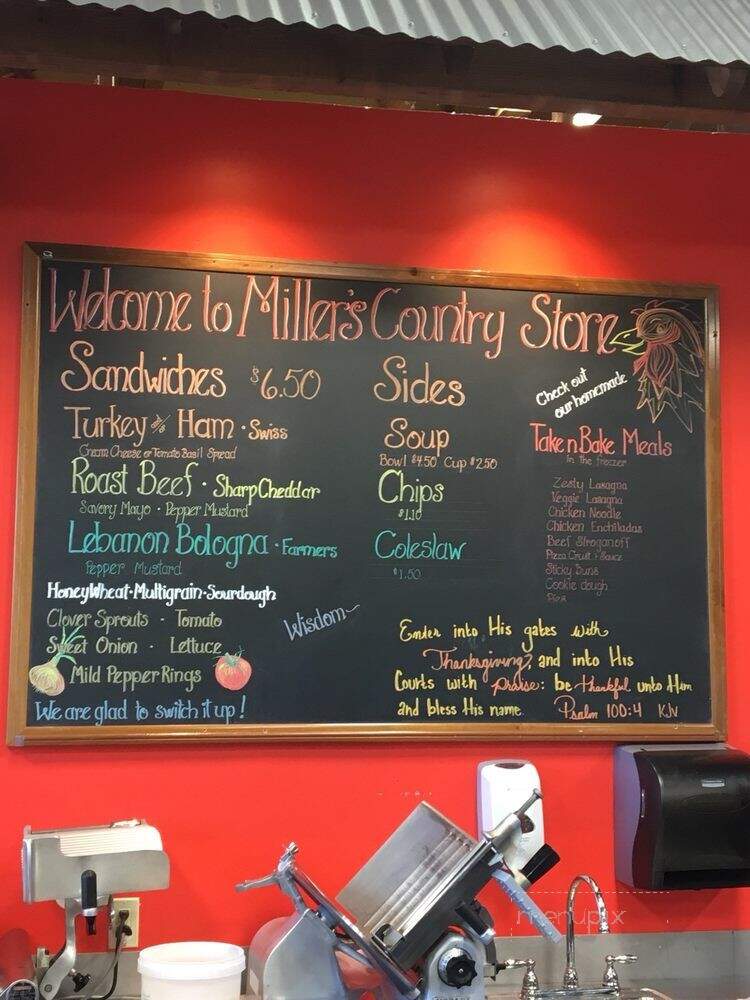 Welcome to Miller's Country Store
Sandwiches $6.50
Turkey and/or Ham · Swiss
Cream Cheese or Tomato Basil Spread
Roast Beef · Sharp Cheddar
Savory Mayo · Pepper Mustard
Lebanon Bologna · Farmers
Pepper Mustard
Honey Wheat · Multigrain · Sourdough
Clover Sprouts · Tomato
Sweet Onion · Lettuce
Mild Pepper Rings
We are glad to switch it up!
Wisdom~
Sides
Soup
Bowl $4.50 Cup $2.50
Chips
$1.10
Coleslaw
$1.50
Check out
our homemade
Take n Bake Meals
in the freezer
Zesty Lasagna
Veggie Lasagna
Chicken Noodle
Chicken Enchiladas
Beef Stroganoff
Pizza Crust & Sauce
Sticky Buns
Cookie dough
Pies
Enter into His gates with
Thanksgiving, and into His
Courts with praise: be thankful unto Him
and bless His name. Psalm 100:4 KJV
menupix